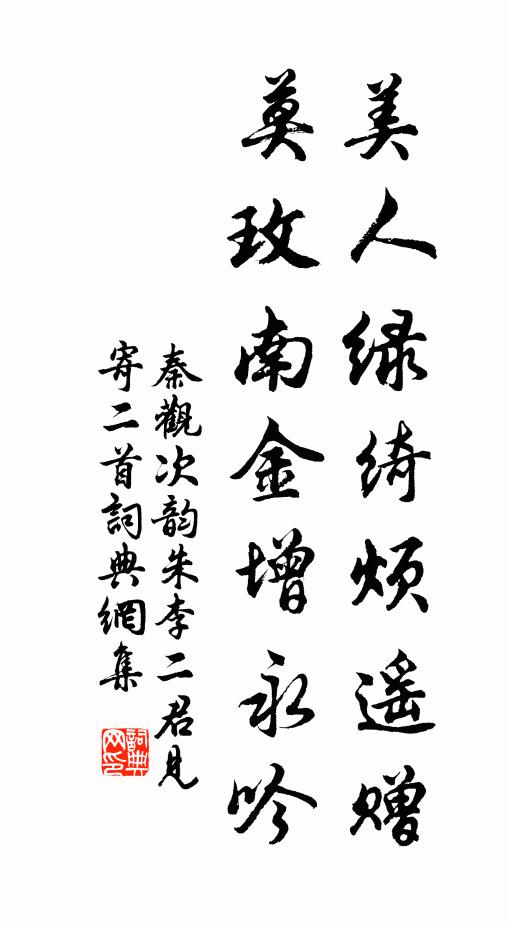 美人绿绮烦遥赠
莫玫南金增永吟
秦觀次韵朱李二君見
寄二首詞典網集
詞典网印